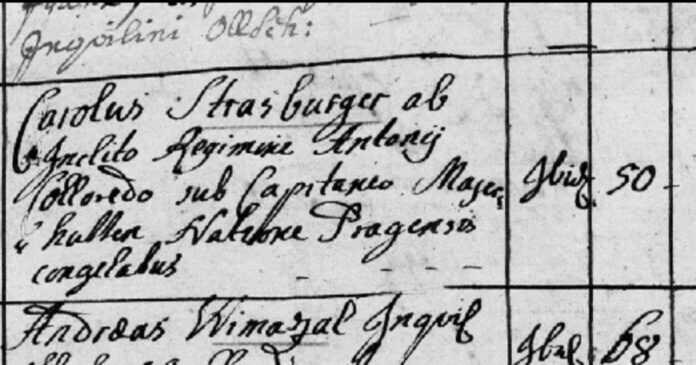 Inquilini
Carolus Strasburger ab
Inclito Regimine Antonij
Colloredo sub Capitaneo Majer
hullen Natione Pragensis
congelatus
Ibid. 50
Andreas Wimazal Inquil
Ibid. 68